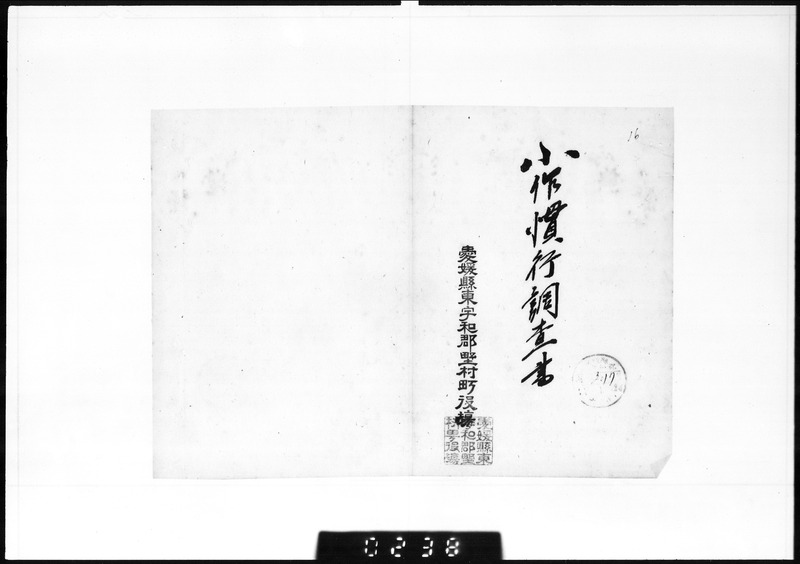 16
小作慣行調査書
愛媛縣東宇和郡野村町役場
愛媛縣東
宇和郡野
村町役場
0238